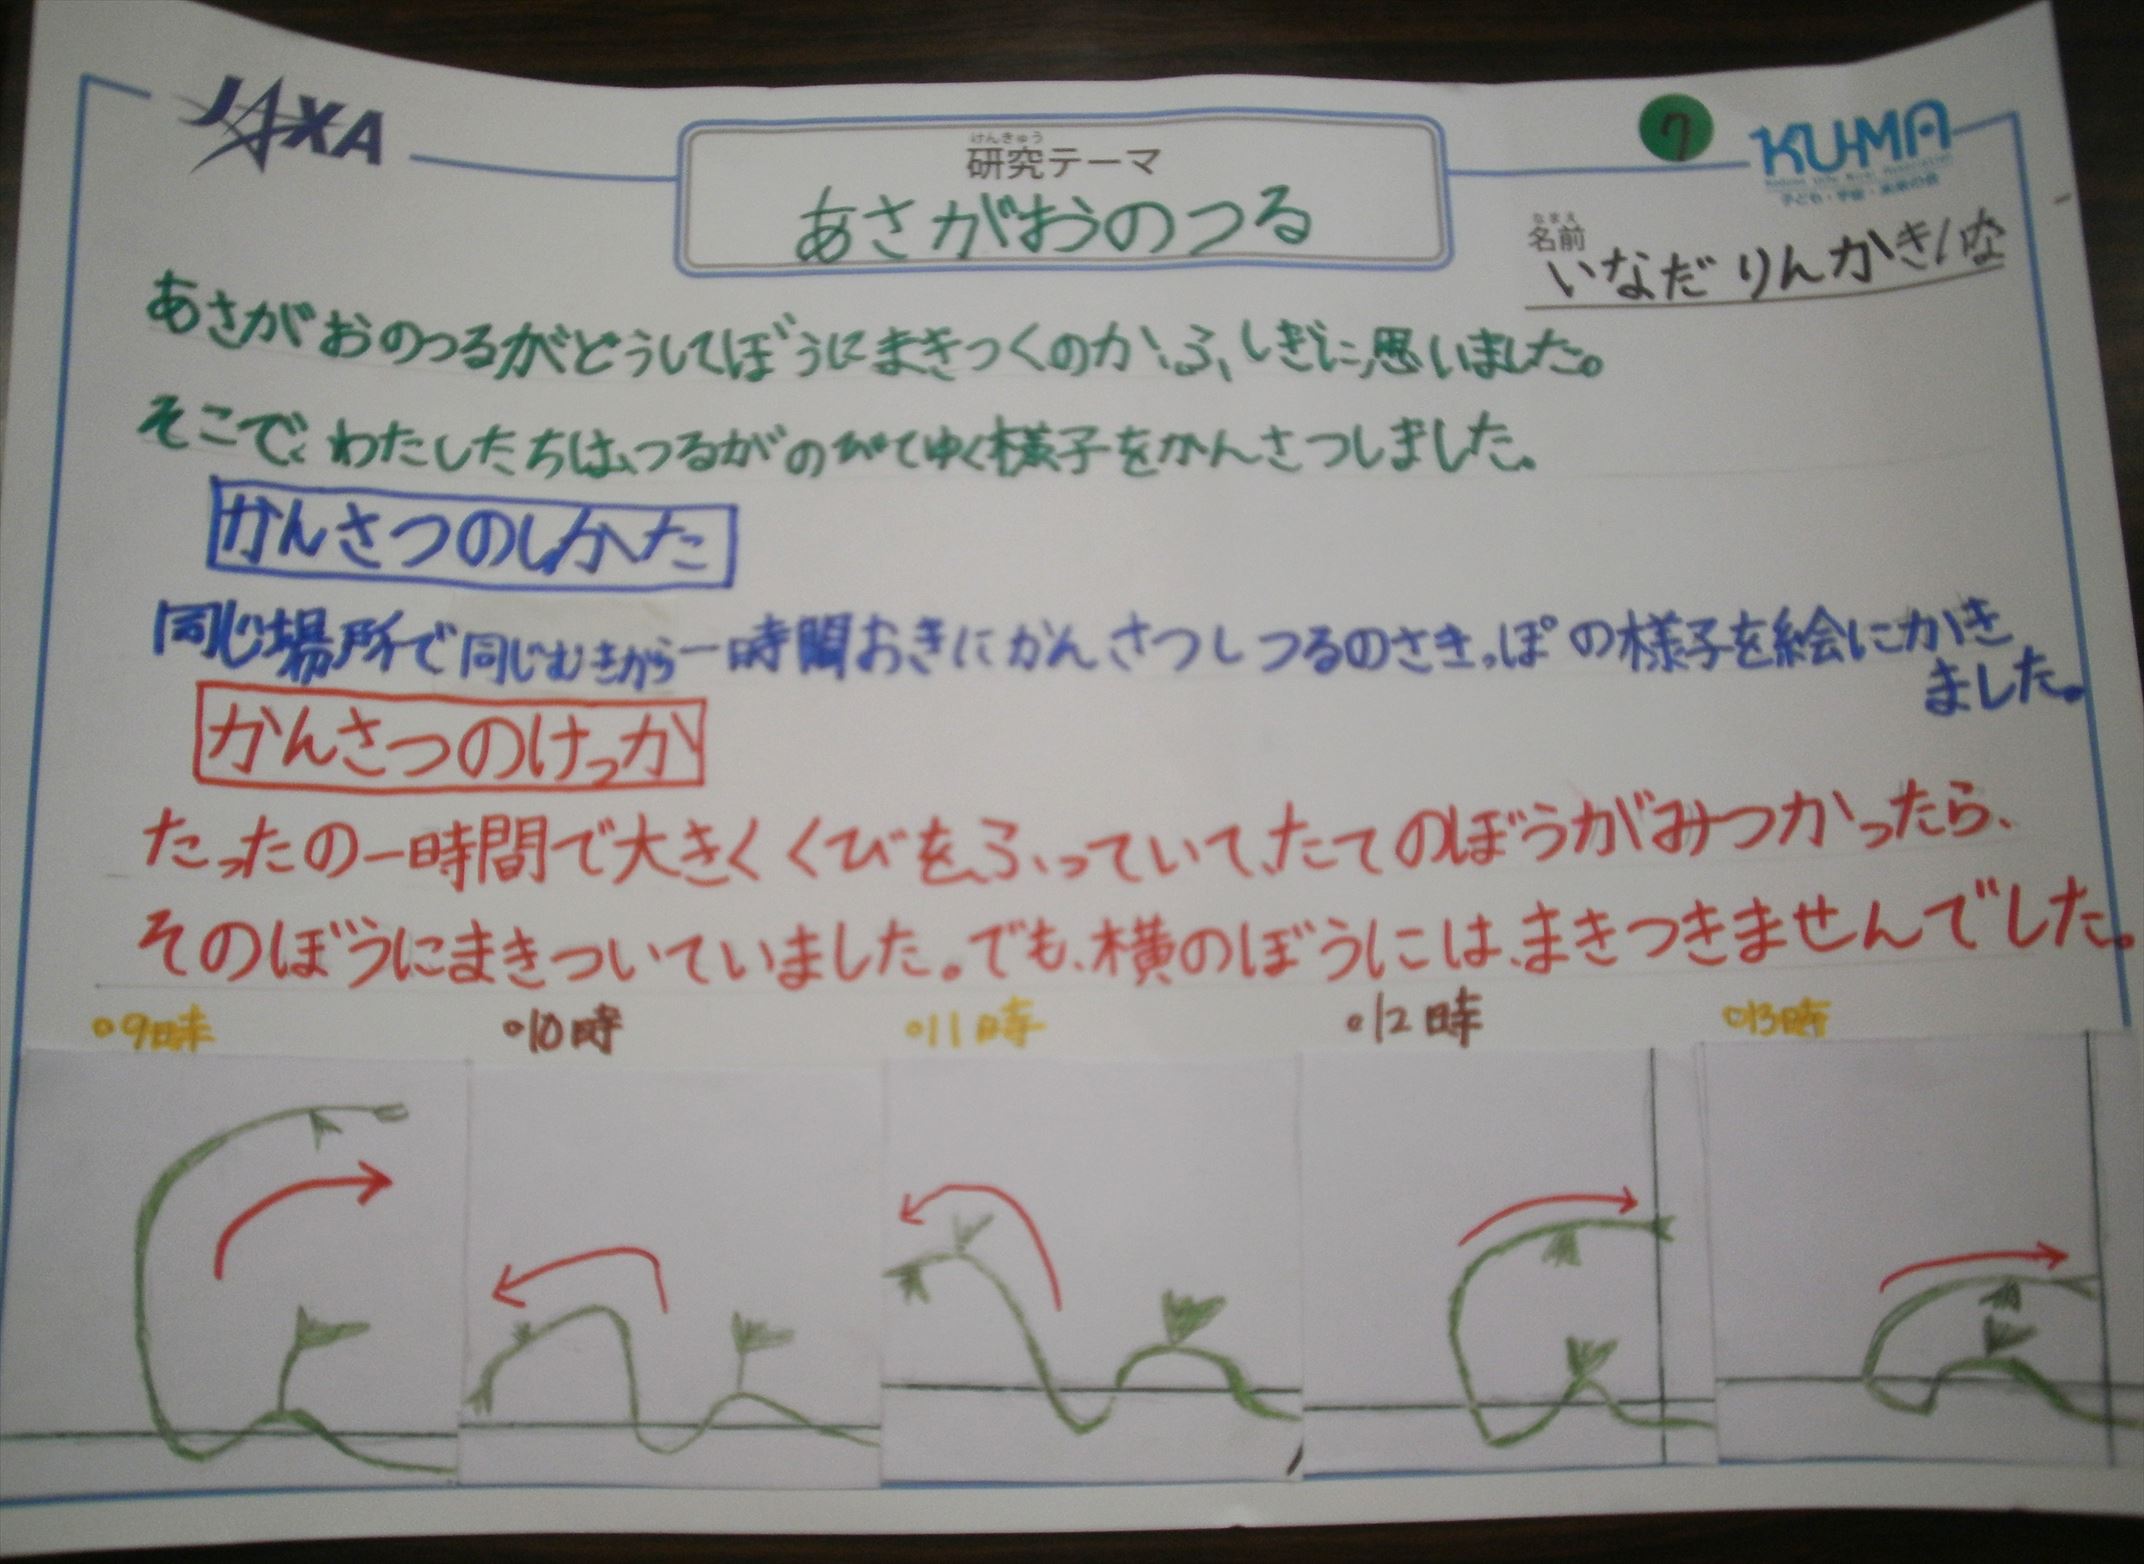 JAXA
けんきゅう
研究テーマ
あさがおのつる
7
KU-MA
子ども・宇宙・未来の会
なまえ
名前
いなだりんか きいな
あさがおのつるがどうしてぼうにまきつくのか、ふしぎに思いました。
そこで、わたしたちは、つるがのびてゆく様子をかんさつしました。
かんさつのしかた
同じ場所で同じむきから一時間おきにかんさつしつるのさきっぽの様子を絵にかき
ました。
かんさつのけっか
たったの一時間で大きくくびをふっていて、たてのぼうがみつかったら、
そのぼうにまきついていました。でも、横のぼうには、まきつきませんでした。
○9時 ○10時 ○11時 ○12時 ○13時